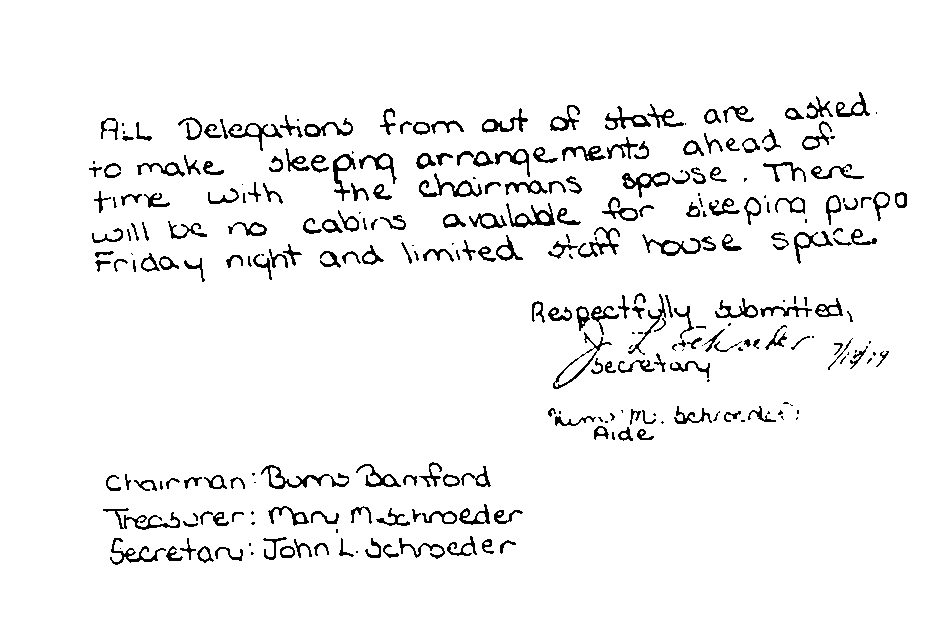 ALL Delegations from out of state are asked
to make sleeping arrangements ahead of
time with the chairmans spouse. There
will be no cabins available for sleeping purpo
Friday night and limited staff house space.
Respectfully submitted,
J L Schroeder 7/18/79
Secretary
M. Schroeder
Aide
Chairman: Burns Bamford
Treasurer: Mary M. Schroeder
Secretary: John L. Schroeder